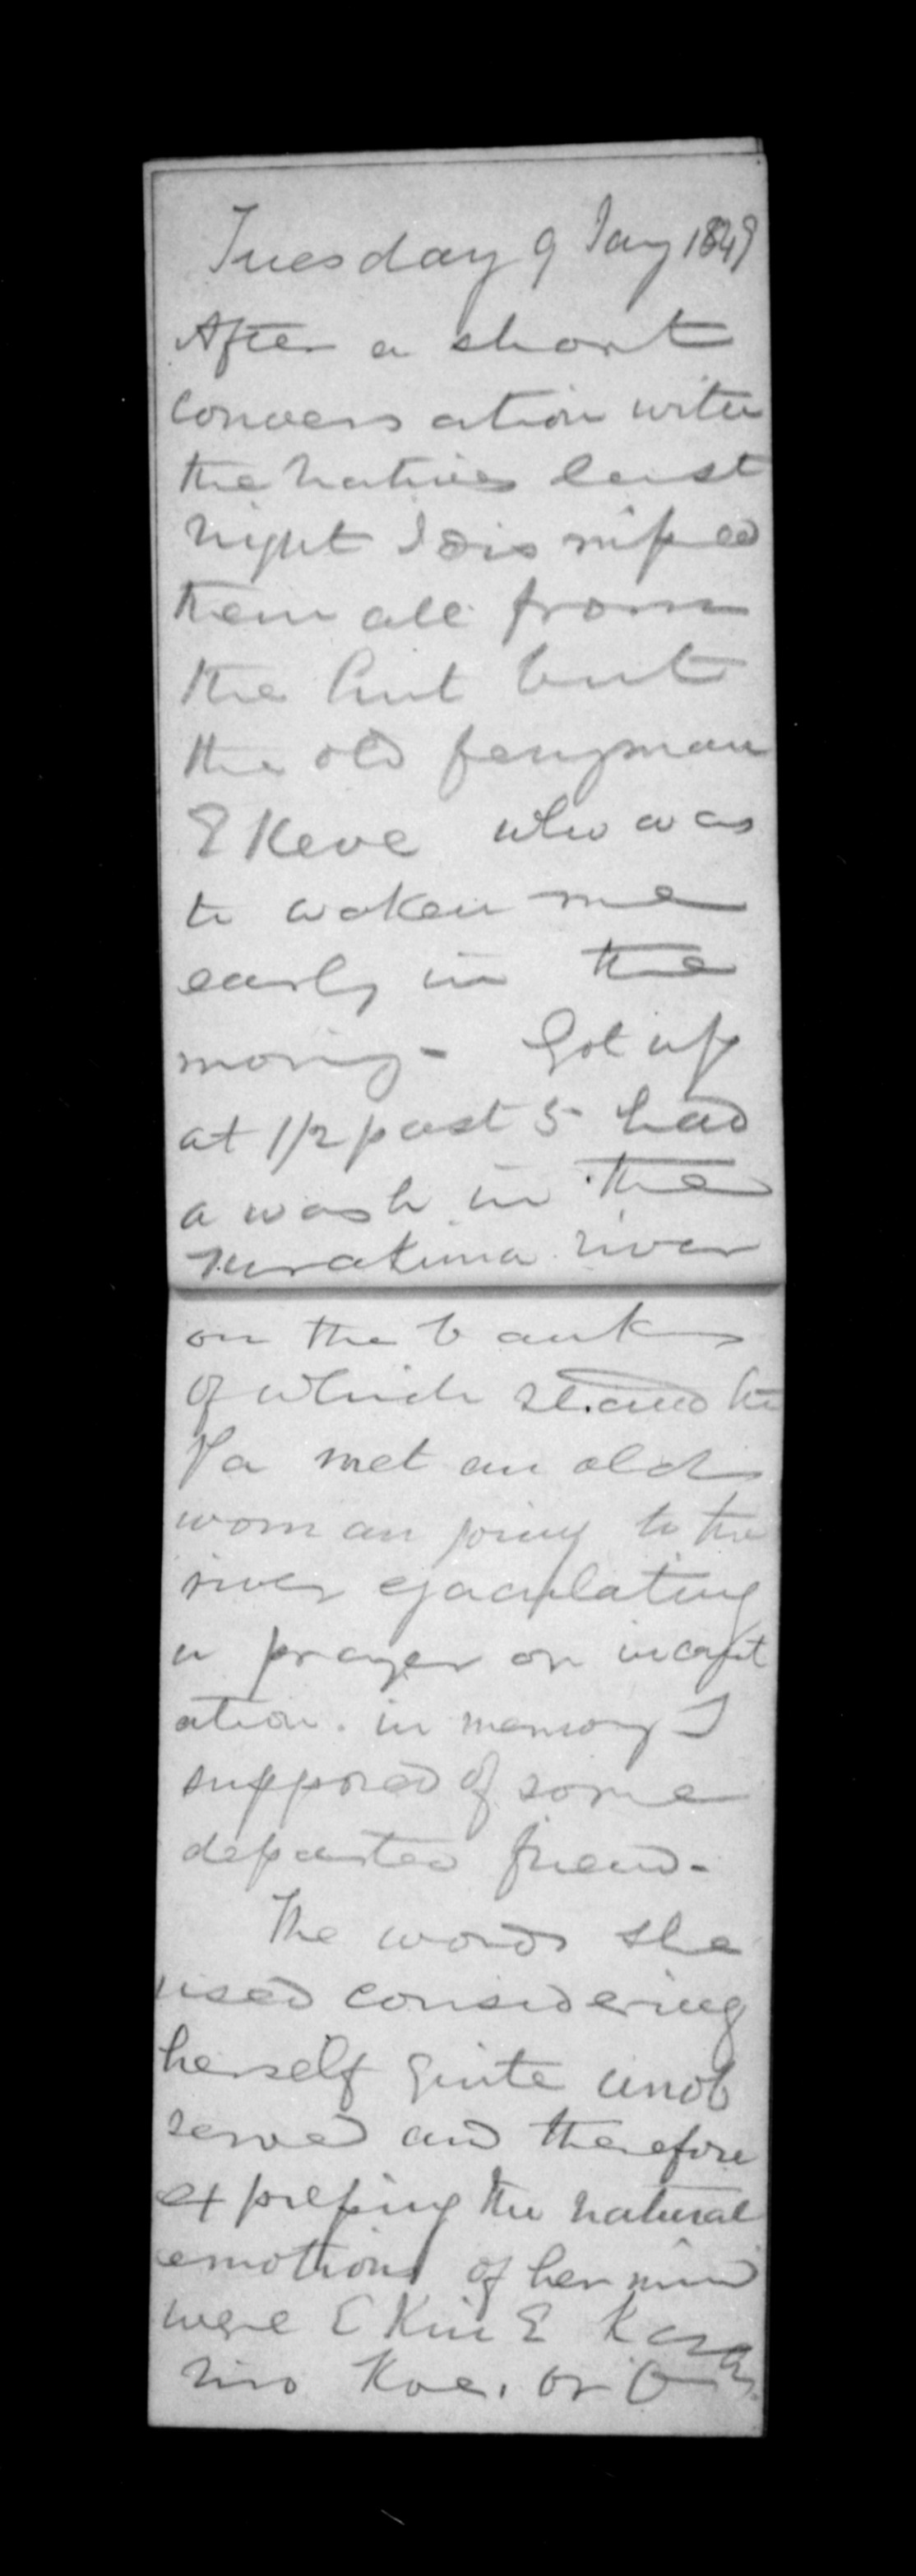 Tuesday 9 Jany 1849
After a short
convers ation with
the natives last
night I dis missed
them all from
the hut but
the old ferryman
E Keve who was
to waken me
early in the
morng - Got up
at 1/2 past 5 had
a wash in the
river
on the banks
of which stand the
Pa met an old
woman going to the
river ejaculating
a prayer or incant
ation. in memory I
supposed of some
departed friend -
The words she
used considering
herself quite unob
served and therefore
expressing the natural
emotions of her mind
were E Kui E
Koe. or